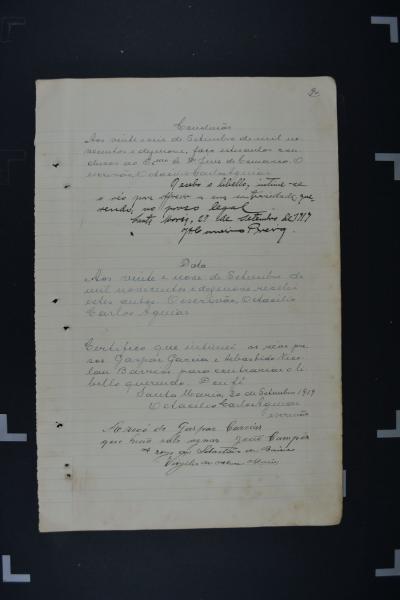 Conclusão
Aos vinte e nove de Setembro de mil no-
vecentos e dezenove, faço estes autos con-
clusos ao Exmo Sr Dr Juiz da Comarca. O
escrivão, Octacilio Carlos Aguiar
Recebo o libello, intime-se
o réo para offerecer a sua contrariedade, que-
rendo, no praso legal.
Santa Maria, 29 de Setembro de 1919
Data
Aos vinte e nove de Setembro de
mil novecentos e dezenove recebi
estes autos. O escrivão, Octacilio
Carlos Aguiar
Certifico que intimei os réos pre-
sos Gaspar Garcia e Sebastião Nico-
lau Barrios para contrariar o li-
bello querendo. Dou fé
Santa Maria, 30 de Setembro 1919
Octacilio Carlos Aguiar
escrivão
A rogo de Gaspar Garcia
que não sabe assignar João Campos
A rogo de Sebastião